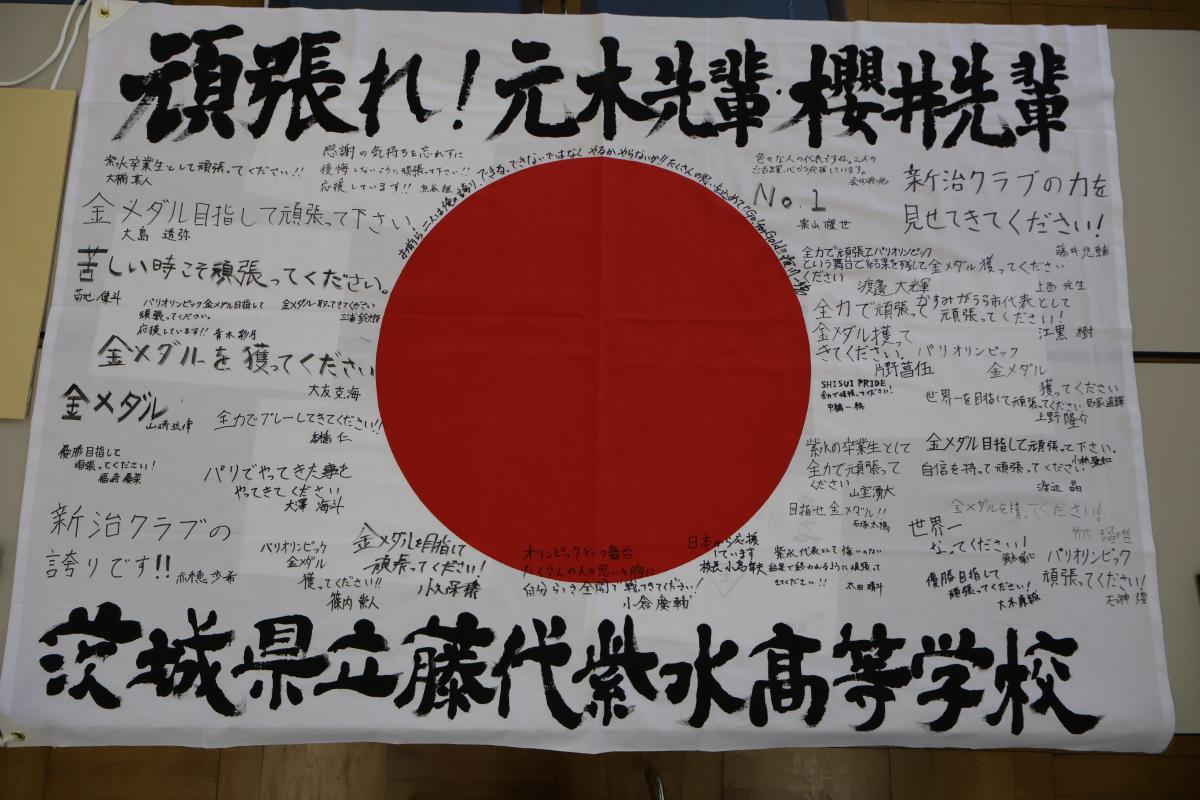 頑張れ！元木先輩・櫻井先輩
紫水卒業生として頑張ってください!!
感謝の気持ちを忘れずに
後悔しないように頑張って下さい!!
応援しています!!
できる、できないではなく やるか やらないか!! たくさんの思いを込めて Go for Gold!!
金メダル目指して頑張って下さい。
大島 透弥
苦しい時こそ頑張ってください。
菊地 健斗
パリオリンピック金メダル目指して
頑張ってください。
応援しています!! 青木
金メダル取ってきてください
金メダルを獲ってください
大友克海
金メダル
全力でプレーしてきてください!!
高橋 仁
優勝目指して
頑張ってください！
パリでやってきた事を
やってきてください
大澤 海斗
新治クラブの
誇りです!!
赤穂 歩希
パリオリンピック
金メダル
獲ってください!!
篠内 崇人
金メダルを目指して
頑張ってください！
オリンピックという舞台
たくさんの人の思いを胸に
自分らしさ全開で戦ってきてください！
小倉 慶輔
日本から応援
しています
校長 小島
No.1
新治クラブの力を
見せてきてください！
藤井 悠輔
全力で頑張ってパリオリンピック
という舞台で結果を残して金メダル獲ってください
ください
渡邊 大輝
上西 光生
全力で頑張って
金メダル獲って
きてください。
片野菖伍
かすみがうら市代表として
頑張ってください！
江黒 樹
パリオリンピック
金メダル
獲ってください
SHISUI PRIDE
全力で頑張ってください！
世界一を目指して頑張ってください
上野 隆介
紫水の卒業生として
全力で頑張って
ください
山室 湧大
金メダル目指して頑張って下さい。
自信を持って頑張ってください
渡辺 晶
目指せ金メダル!!
石塚 太陽
金メダルを獲ってください！
世界一
なってください！
紫水代表として悔いのない
結果で終われるように頑張って
きてください!!
太田 晴斗
優勝目指して
頑張ってください！
パリオリンピック
頑張ってください！
石神 煌
茨城県立藤代紫水高等学校